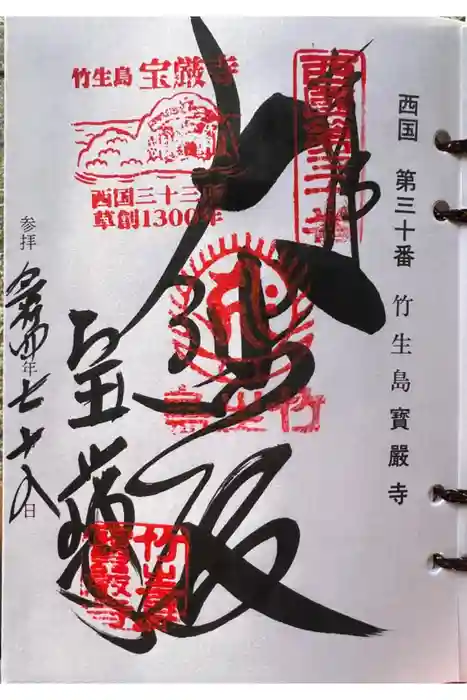 西国 第三十番 竹生島寶嚴寺
西國第三十番
大悲殿
竹生島
竹生島 宝厳寺
西国三十三所
草創1300年
竹生島
寶嚴寺
参拝 令和四年七十八日